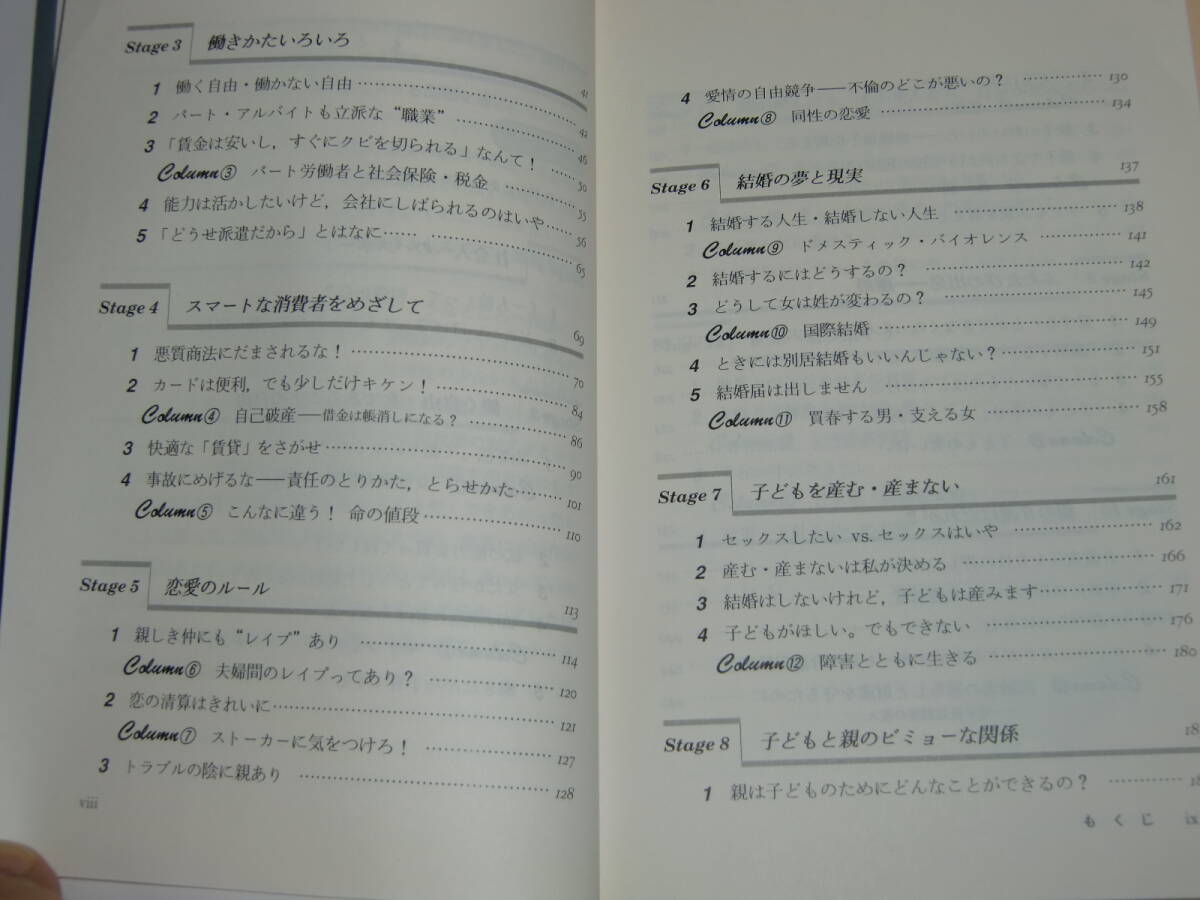 Stage 3 働きかたいろいろ
41
1 働く自由・働かない自由 42
2 パート・アルバイトも立派な“職業” 46
3 「賃金は安いし，すぐにクビを切られる」なんて！ 50
Column③ パート労働者と社会保険・税金 55
4 能力は活かしたいけど，会社にしばられるのはいや 56
5 「どうせ派遣だから」とはなに 65
Stage 4 スマートな消費者をめざして 69
1 悪質商法にだまされるな！ 70
2 カードは便利，でも少しだけキケン！ 84
Column④ 自己破産——借金は帳消しになる？ 86
3 快適な「賃貸」をさがせ 90
4 事故にめげるな——責任のとりかた，とらせかた 101
Column⑤ こんなに違う！ 命の値段 110
Stage 5 恋愛のルール 113
1 親しき仲にも“レイプ”あり 114
Column⑥ 夫婦間のレイプってあり？ 120
2 恋の清算はきれいに 121
Column⑦ ストーカーに気をつけろ！ 127
3 トラブルの陰に親あり 128
viii
4 愛情の自由競争——不倫のどこが悪いの？ 130
Column⑧ 同性の恋愛 134
Stage 6 結婚の夢と現実 137
1 結婚する人生・結婚しない人生 138
Column⑨ ドメスティック・バイオレンス 141
2 結婚するにはどうするの？ 142
3 どうして女は姓が変わるの？ 145
Column⑩ 国際結婚 149
4 ときには別居結婚もいいんじゃない？ 151
5 結婚届は出しません 155
Column⑪ 買春する男・支える女 158
Stage 7 子どもを産む・産まない 161
1 セックスしたい vs. セックスはいや 162
2 産む・産まないは私が決める 166
3 結婚はしないけれど，子どもは産みます 171
4 子どもがほしい。でもできない 176
Column⑫ 障害とともに生きる 180
Stage 8 子どもと親のビミョーな関係
1 親は子どものためにどんなことができるの？
もくじ ix